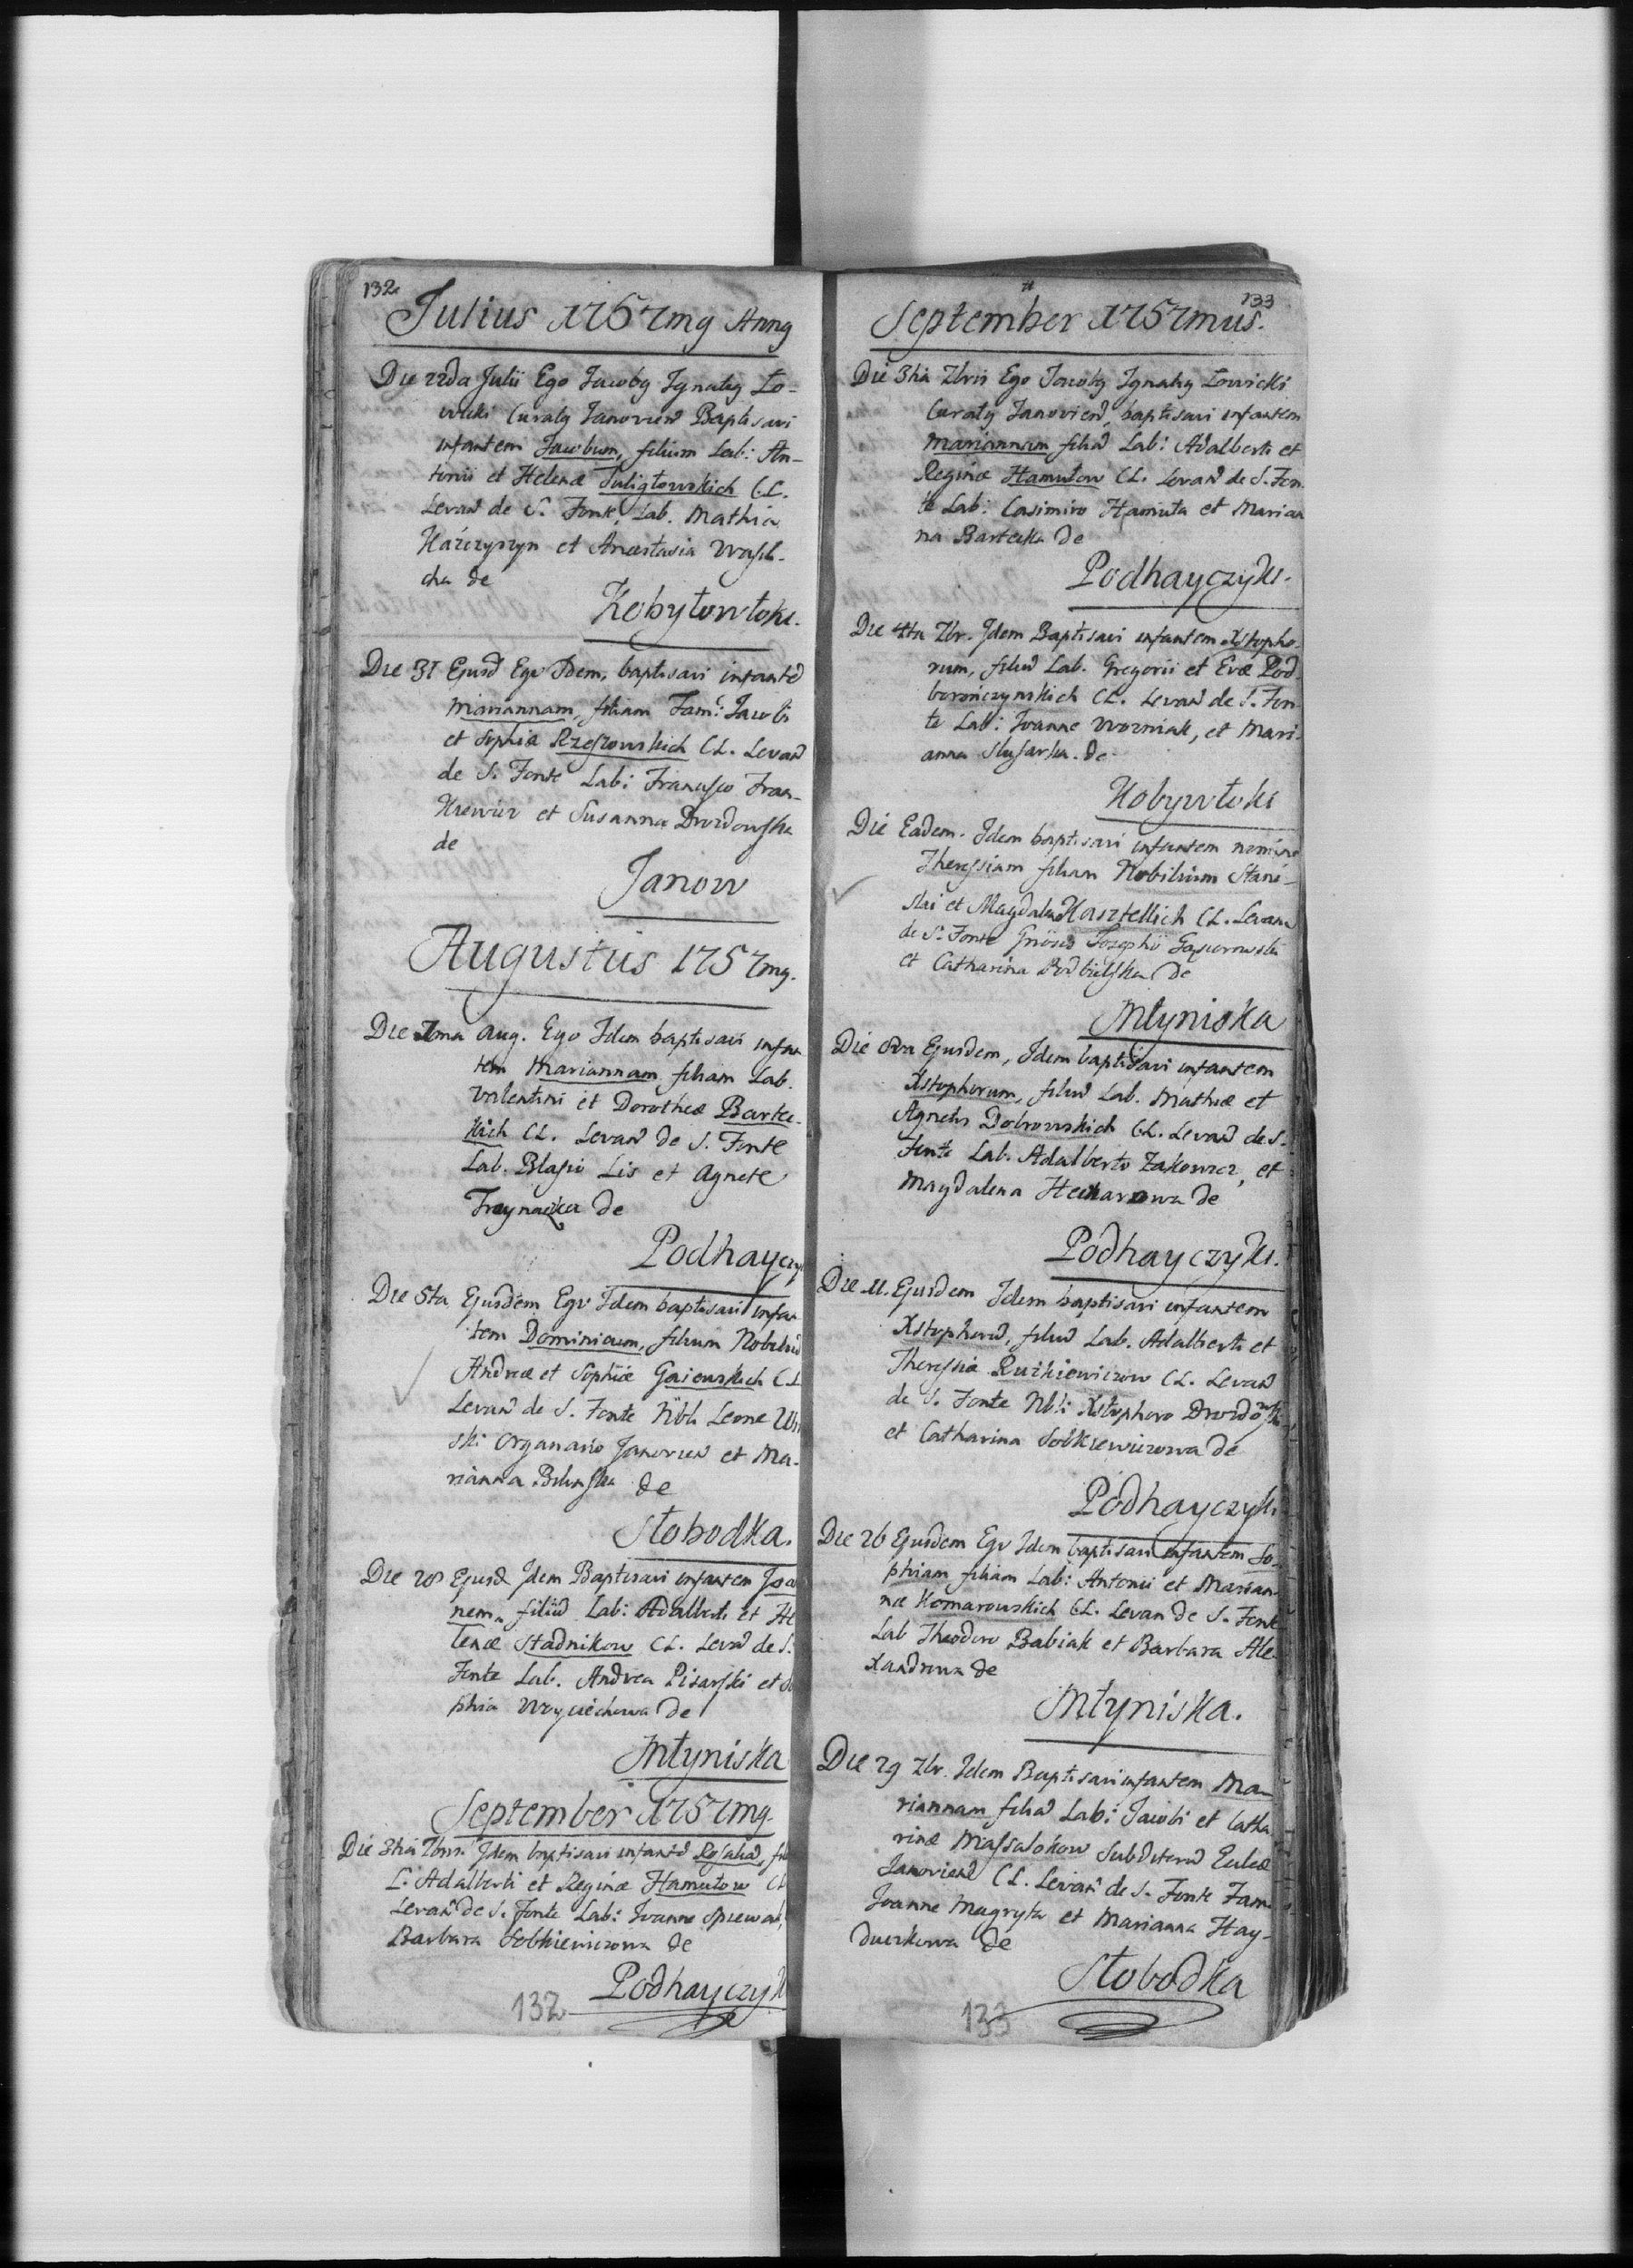 132
Julius 1757mg Anng
Die 22da Julii Ego Jacobg Ignatig Ło-
wicki Curatg Janovien Baptisavi
infantem Jacobum, filium Lab: An-
tonii et Helenæ Tuligłowskich C.L.
Levan de S. Fonte, Lab. Mathia
Harczyszyn et Anastasia Wasil-
cha de
Kobyłowłoki.
Die 31 Ejusd Ego Idem, baptisavi infante
Mariannam, filiam Fam: Jacobi
et Sophiæ Rzeszowskich CL. Levan
de S. Fonte Lab: Francisco Fran-
kiewicz et Susanna Drozdowska
de
Janow
Augustus 1757mg.
Die 7ma Aug. Ego Idem baptisavi infan
tem Mariannam filiam Lab.
Valentini et Dorotheæ Bartec-
kich CL. Levan de S. Fonte
Lab. Blasio Lis et Agnete
de
Podhayczy
Die 5ta Ejusdem Ego Idem baptisavi infan
tem Dominicum, filium Nobiliu
Andreæ et Sophiæ Gaiewskich CL
Levan de S. Fonte Nbli Leone
ski Organario Janovien et Ma-
rianna Bilinska de
Słobodka.
Die 28 Ejusd Idem Baptisavi infantem Joa
nem, filiu Lab: Adalberti et He
lenæ Stadnikow CL. Levan de S.
Fonte Lab. Andrea Pisarski et So
phia Woyciechowa de
Młyniska
September 1757mg.
Die 3tia 7bris Idem baptisavi infante Rosalia, fil
L: Adalberti et Reginæ Hamutow CL
Levan de S. Fonte Lab: Joanne Spiewak,
Barbara Sobkiewiczowa de
Podhayczyk
132
133
September 1757mus.
Die 3tia 7bris Ego Jacobg Ignatig Łowicki
Curatg Janovien, baptisavi infantem
Mariannam filia Lab: Adalberti et
Reginæ Hamutow CL. Levan de S. Fon
te Lab: Casimiro Hamuta et Marian
na Bartecka de
Podhayczyki.
Die 4ta 7br. Idem Baptisavi infantem Xstopho-
rum, filiu Lab. Gregorii et Evæ Pod
boronczynskich CL. Levan de S. Fon
te Lab: Joanne Wozniak, et Mari-
anna Slusarka. de
Kobywłoki
Die Eadem. Idem baptisavi infantem nomine
Theressiam filiam Nobilium Stani-
slai et Magdalen Kasztellich CL. Levan
de S. Fonte Gnoso Josepho Gąsiorowski
et Catharina Podbielska de
Młyniska
Die 8va Ejusdem, Idem baptisavi infantem
Xstophorum, filiu Lab. Mathiæ et
Agnetis Dobrowskich CL. Levan de S.
Fonte Lab. Adalberto Zakowicz, et
Magdalena de
Podhayczyki.
Die 11. Ejusdem Idem baptisavi infantem
Xstophoru, filiu Lab. Adalberti et
Theressiæ Ruzkiewiczow CL. Levan
de S. Fonte Nbli Xstophoro Drozdowski
et Catharina Sobkiewiczowa de
Podhayczyki
Die 26 Ejusdem Ego Idem baptisavi infantem So-
phiam filiam Lab: Antonii et Marian-
næ Komarowskich CL. Levan de S. Fonte
Lab Theodoro Babiak et Barbara Ale-
xandrowa de
Młyniska.
Die 29 7br. Idem Baptisavi infantem Ma-
riannam filia Lab: Jacobi et Catha
rinæ Massalokow Subditoru Eccliæ
Janoviens CL. Levan de S. Fonte Fam.
Joanne Magryta et Marianna Hay-
duczkowa de
Słobodka
133